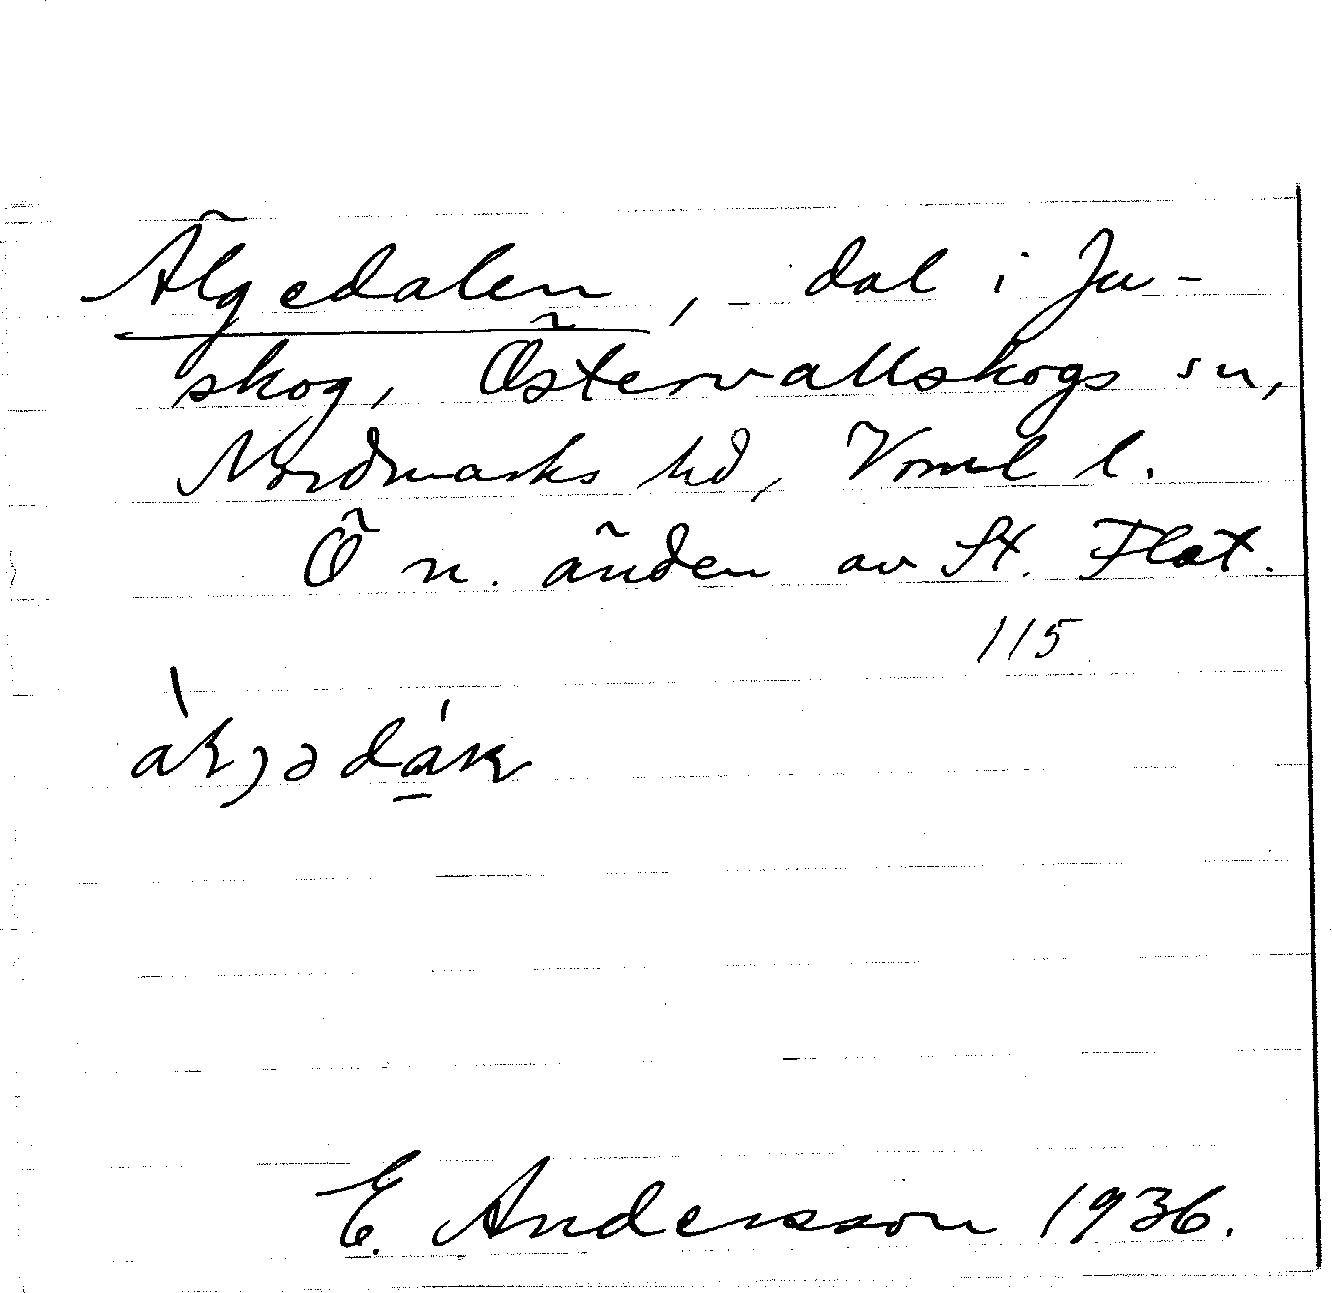 Älgedalen, dal i Ju-
skog, Östervallskogs sn,
Nordmarks hd, Vrml l.
Ö n. änden av St. Flat.
115
E. Andersson 1936.